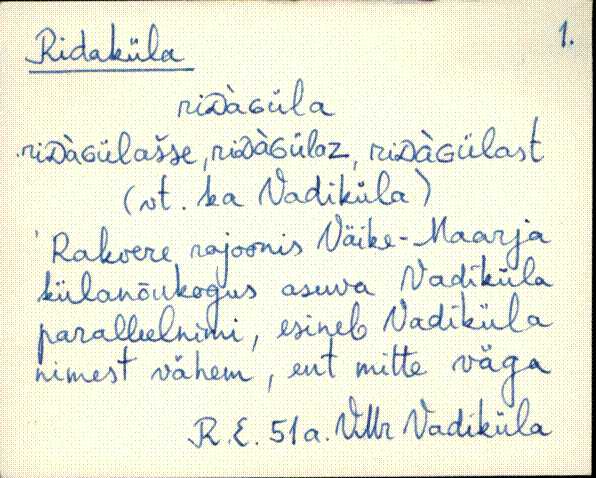 Ridaküla
1.
riᴅàɢüla
riᴅàɢülašse, riᴅàɢülaz, riᴅàɢülast
(vt. ka Vadiküla)
Rakvere rajoonis Väike-Maarja
külanõukogus asuva Vadiküla
paralleelnimi, esineb Vadiküla
nimest vähem, ent mitte väga
R.E. 51 a. VMr Vadiküla